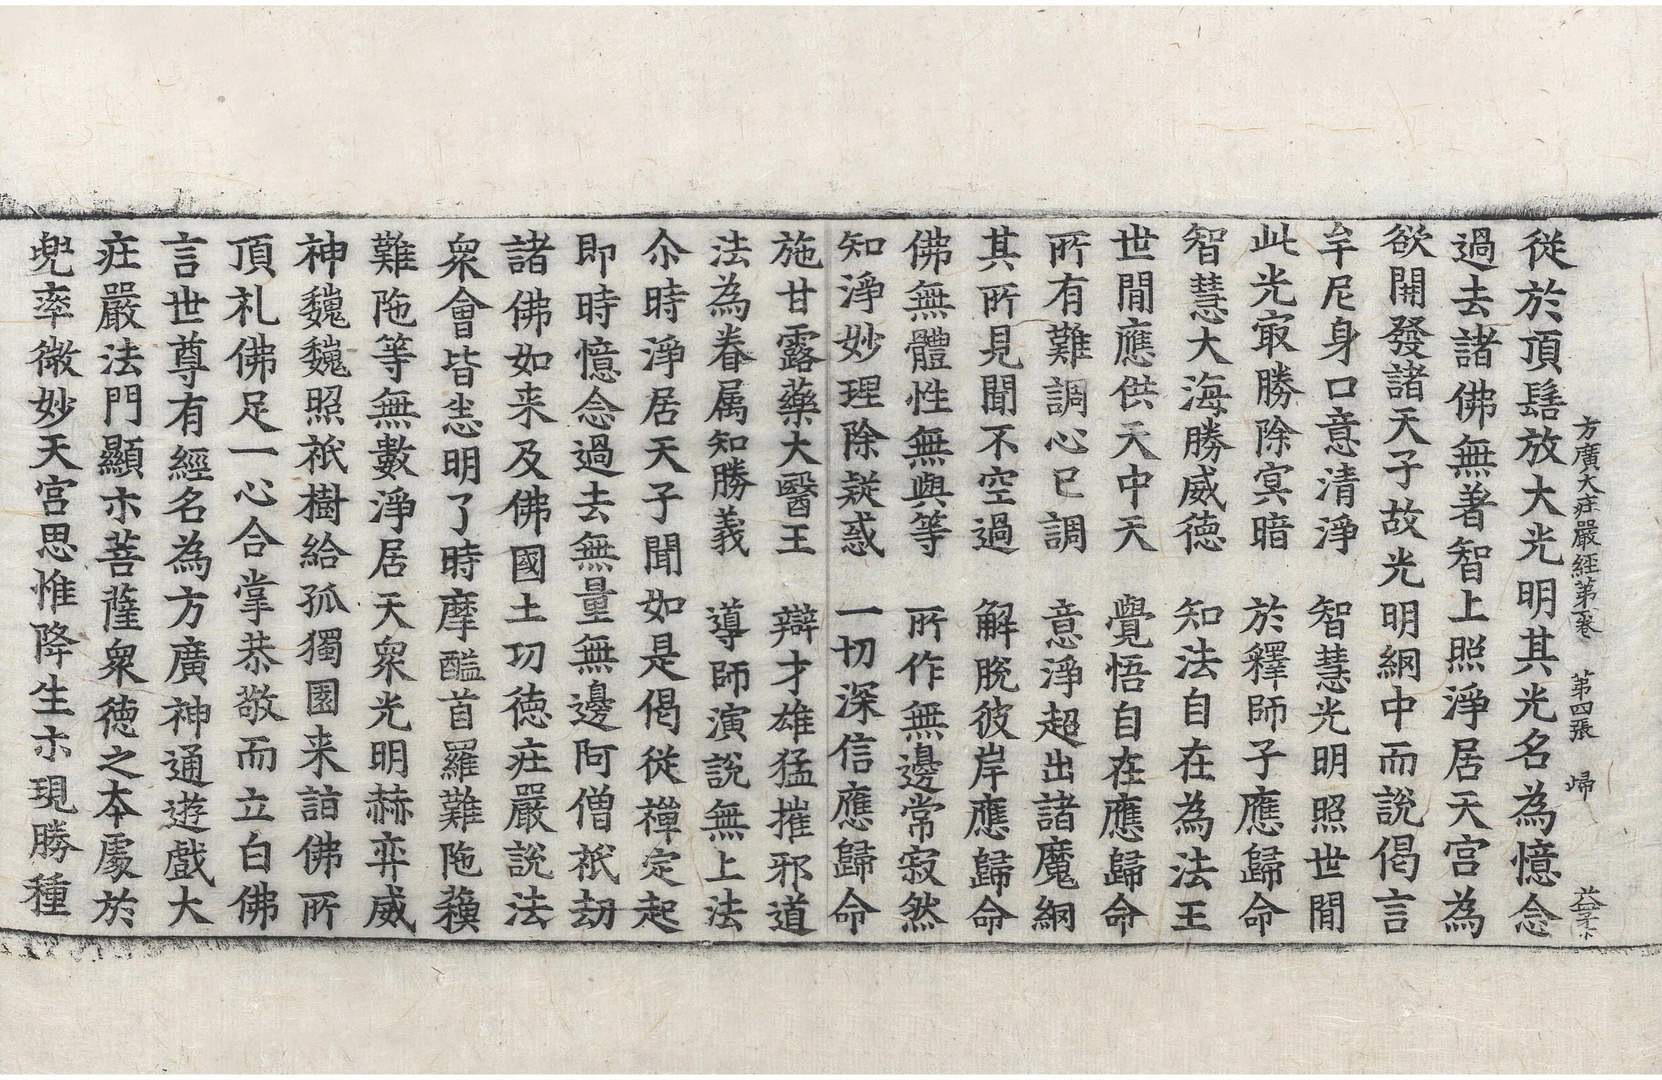 方廣大庄嚴經第一卷 第四張 歸
從於頂髻放大光明其光名為憶念
過去諸佛無著智上照淨居天宮為
欲開發諸天子故光明網中而說偈言
牟尼身口意清淨 智慧光明照世間
此光㝡勝除㝠暗 於釋師子應歸命
智慧大海勝威德 知法自在為法王
世間應供天中天 覺悟自在應歸命
所有難調心已調 意淨超出諸魔網
其所見聞不空過 解脫彼岸應歸命
佛無體性無與等 所作無邊常寂然
知淨妙理除疑惑 一切深信應歸命
施甘露藥大醫王 辯才雄猛摧邪道
法為眷属知勝義 導師演說無上法
尒時淨居天子聞如是偈從禪定起
即時憶念過去無量無邊阿僧祇劫
諸佛如来及佛國土功德庄嚴說法
衆會皆悉明了時摩醯首羅難陁蘓
難陁等無數淨居天衆光明赫弈威
神巍巍照祇樹給孤獨園来詣佛所
頂礼佛足一心合掌恭敬而立白佛
言世尊有經名為方廣神通遊戲大
庄嚴法門顯示菩薩衆德之本處於
兜率微妙天宮思惟降生示現勝種